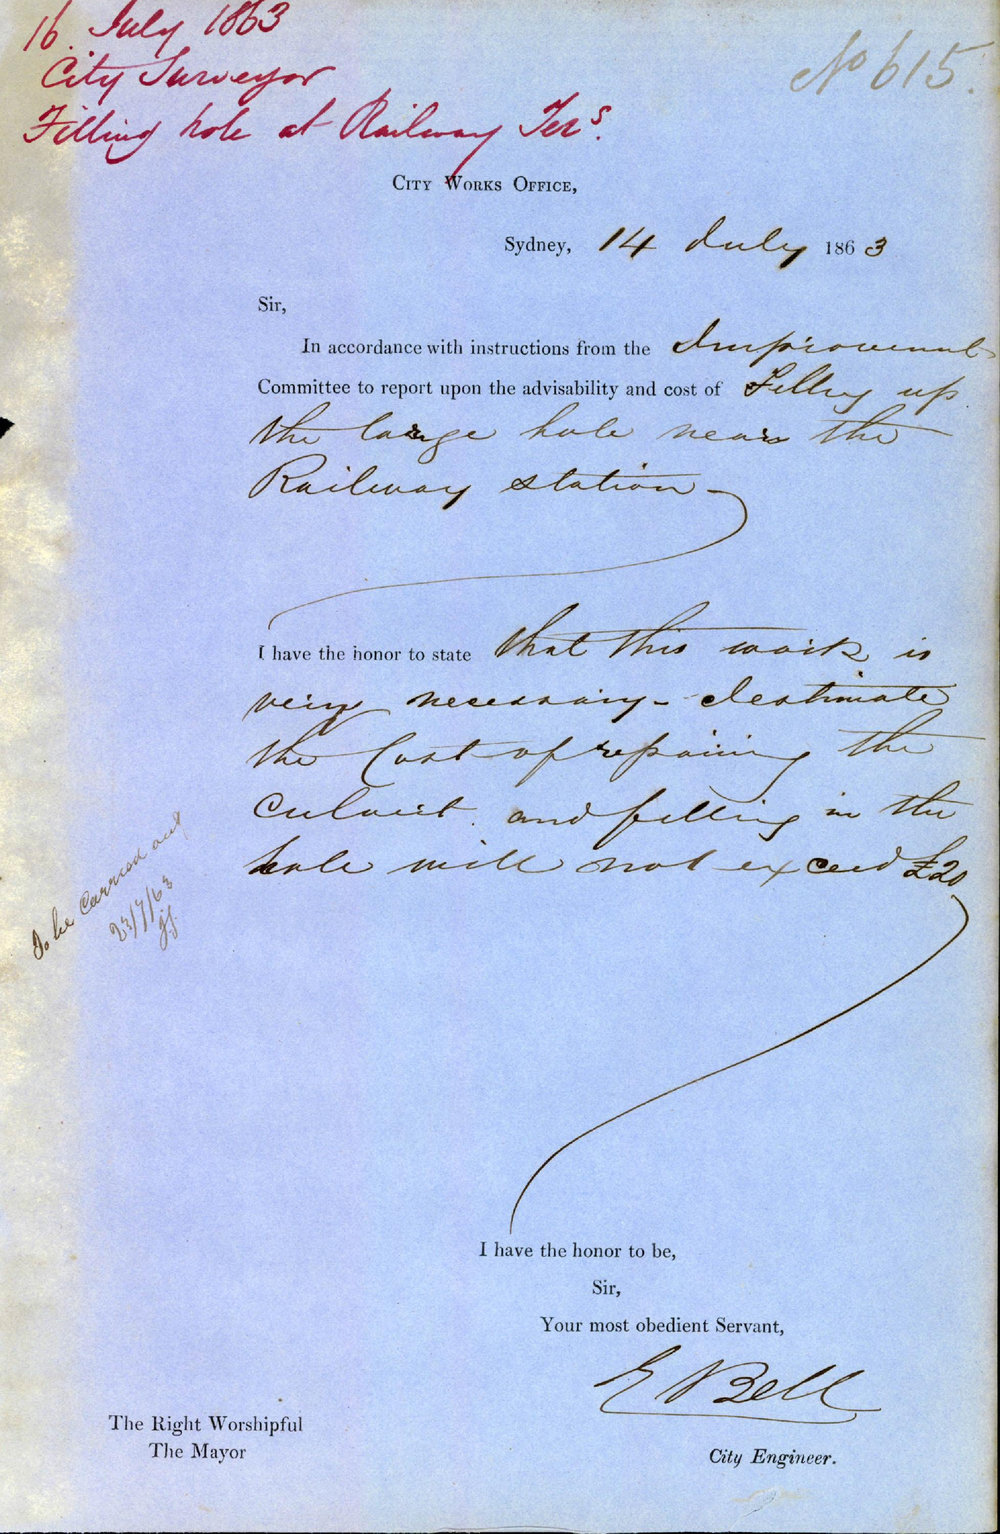 16. July 1863
City Surveyor
Filling hole at Railway Ters.
No 615.
City Works Office,
Sydney, 14 July 1863
Sir,
In accordance with instructions from the Improvement
Committee to report upon the advisability and cost of Filling up
the large hole near the
Railway station
I have the honor to state that this work is
very necessary - I estimate
the Cost of repairing the
Culvert and filling in the
hole will not exceed £20
To be Carried out
23/7/63
I have the honor to be,
Sir,
Your most obedient Servant,
E Bell
City Engineer.
The Right Worshipful
The Mayor